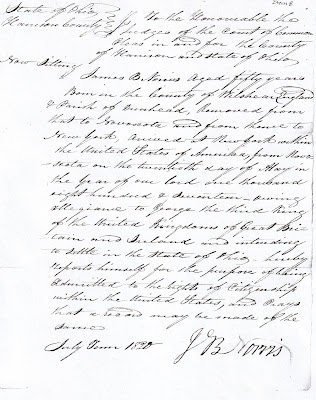 State of Ohio
Harrison County SS
To the Honourable the
Judges of the Court of Common
Pleas in and for the County
of Harrison and State of Ohio
Now Sitting
James B. Norris Aged fifty years
Born in the County of Wilshear England
& Parish of Removed from
that to Novascota and from hence to
New York, arived at Newyork within
the United States of America, from Nova
scota on the twentieth day of May in
the Year of our lord one thousand
eight hundred & Seventeen - owing
allegiance to George the third King
of the United Kingdoms of Great Bri
tain and Ireland and intending
to Settle in the State of Ohio, hereby
reports himself for the purpose of being
Admitted to the rights of Citizenship
within the United States, and Prays
that a record may be made of the
same
July Term 1820
J B Norris